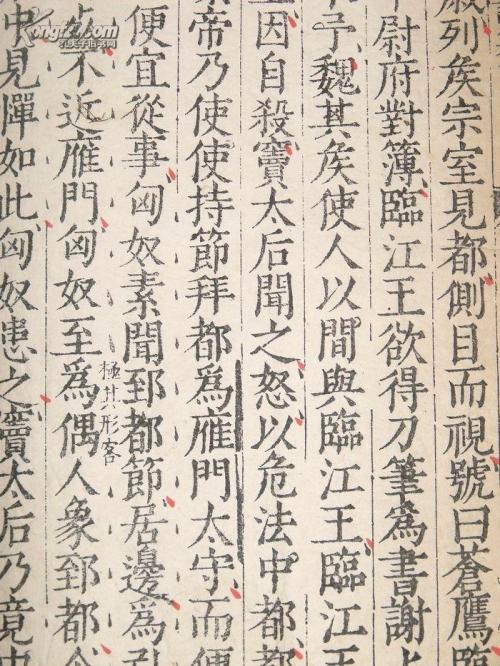 列矦宗室見都側目而視號曰蒼鷹臨
尉府對簿臨江王欲得刀筆爲書謝上
予魏其矦使人以間與臨江王臨江王
因自殺竇太后聞之怒以危法中都都
帝乃使使持節拜都爲雁門太守而便
便宜從事匈奴素聞郅都節居邊爲引
極其形容
不近雁門匈奴至爲偶人象郅都令
中見憚如此匈奴患之竇太后乃竟中
Kongfz.com
孔夫子旧书网